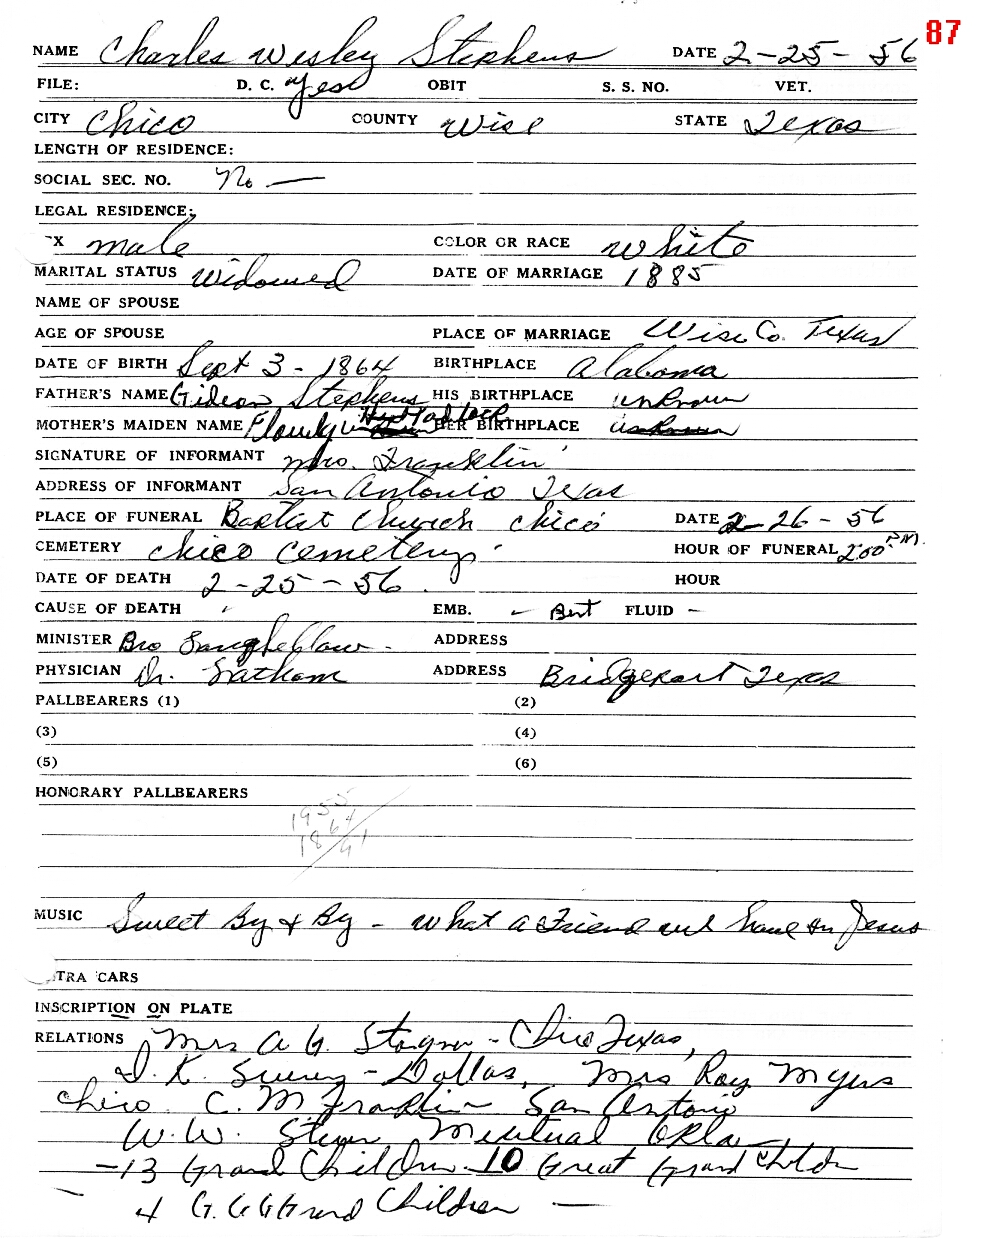 87
NAME Charles Wesley Stephens DATE 2-25-56
FILE: D. C. yes OBIT S. S. NO. VET.
CITY Chico COUNTY Wise STATE Texas
LENGTH OF RESIDENCE:
SOCIAL SEC. NO. No —
LEGAL RESIDENCE:
X male COLOR OR RACE white
MARITAL STATUS Widowed DATE OF MARRIAGE 1885
NAME OF SPOUSE
AGE OF SPOUSE PLACE OF MARRIAGE Wise Co. Texas
DATE OF BIRTH Sept 3 - 1864 BIRTHPLACE Alabama
FATHER'S NAME Gideon Stephens HIS BIRTHPLACE unknown
MOTHER'S MAIDEN NAME HER BIRTHPLACE unknown
SIGNATURE OF INFORMANT Mrs. Franklin
ADDRESS OF INFORMANT San Antonio Texas
PLACE OF FUNERAL Baptist Church Chico DATE 2-26-56
CEMETERY Chico Cemetery HOUR OF FUNERAL 2:00 PM.
DATE OF DEATH 2-25-56 HOUR
CAUSE OF DEATH EMB. - Burt FLUID -
MINISTER Bro ADDRESS
PHYSICIAN Dr. Latham ADDRESS Bridgeport Texas
PALLBEARERS (1) (2)
(3) (4)
(5) (6)
HONORARY PALLBEARERS
1955
1864
91
MUSIC Sweet By & By - What a Friend we have in Jesus
TRA CARS
INSCRIPTION ON PLATE
RELATIONS Mrs A G. - Chico Texas,
D. K. - Dallas, Mrs Roy Myers
Chico. C. M Franklin San Antonio
W. W. Okla
- 13 Grand Children 10 Great Grand Childn
4 G. G G Grand Children —